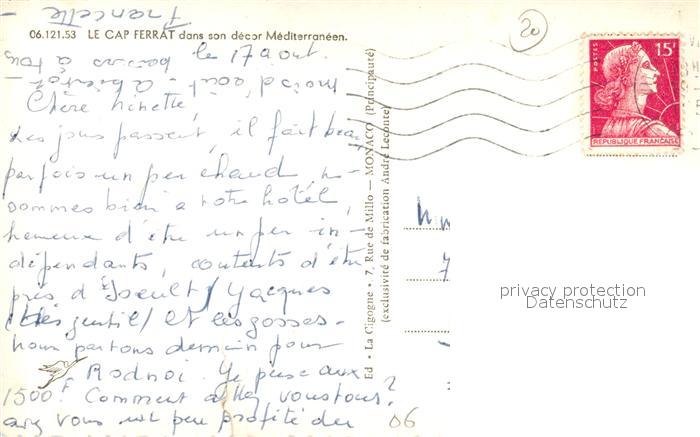 06.121.53 LE CAP FERRAT dans son décor Méditerranéen.
le 17 août.
Chère Ninette
Les jours passent, il fait beau
parfois un peu chaud, n.
sommes bien a notre hôtel,
heureux d'être un peu in-
dépendants, contents d'être
près d'Iseult, Jacques
(très gentil) et les gosses.
Nous partons demain pour
Je pense aux
1500F. Comment allez vous tous?
avez vous un peu profité du
mois d'août, - à bientôt -
bons baisers à tous
Francette
Ed. La Cigogne • 7, Rue de Millo — MONACO (Principauté)
(exclusivité de fabrication André Leconte)
20
POSTES
15F
REPUBLIQUE FRANÇAISE
7
privacy protection
Datenschutz
06